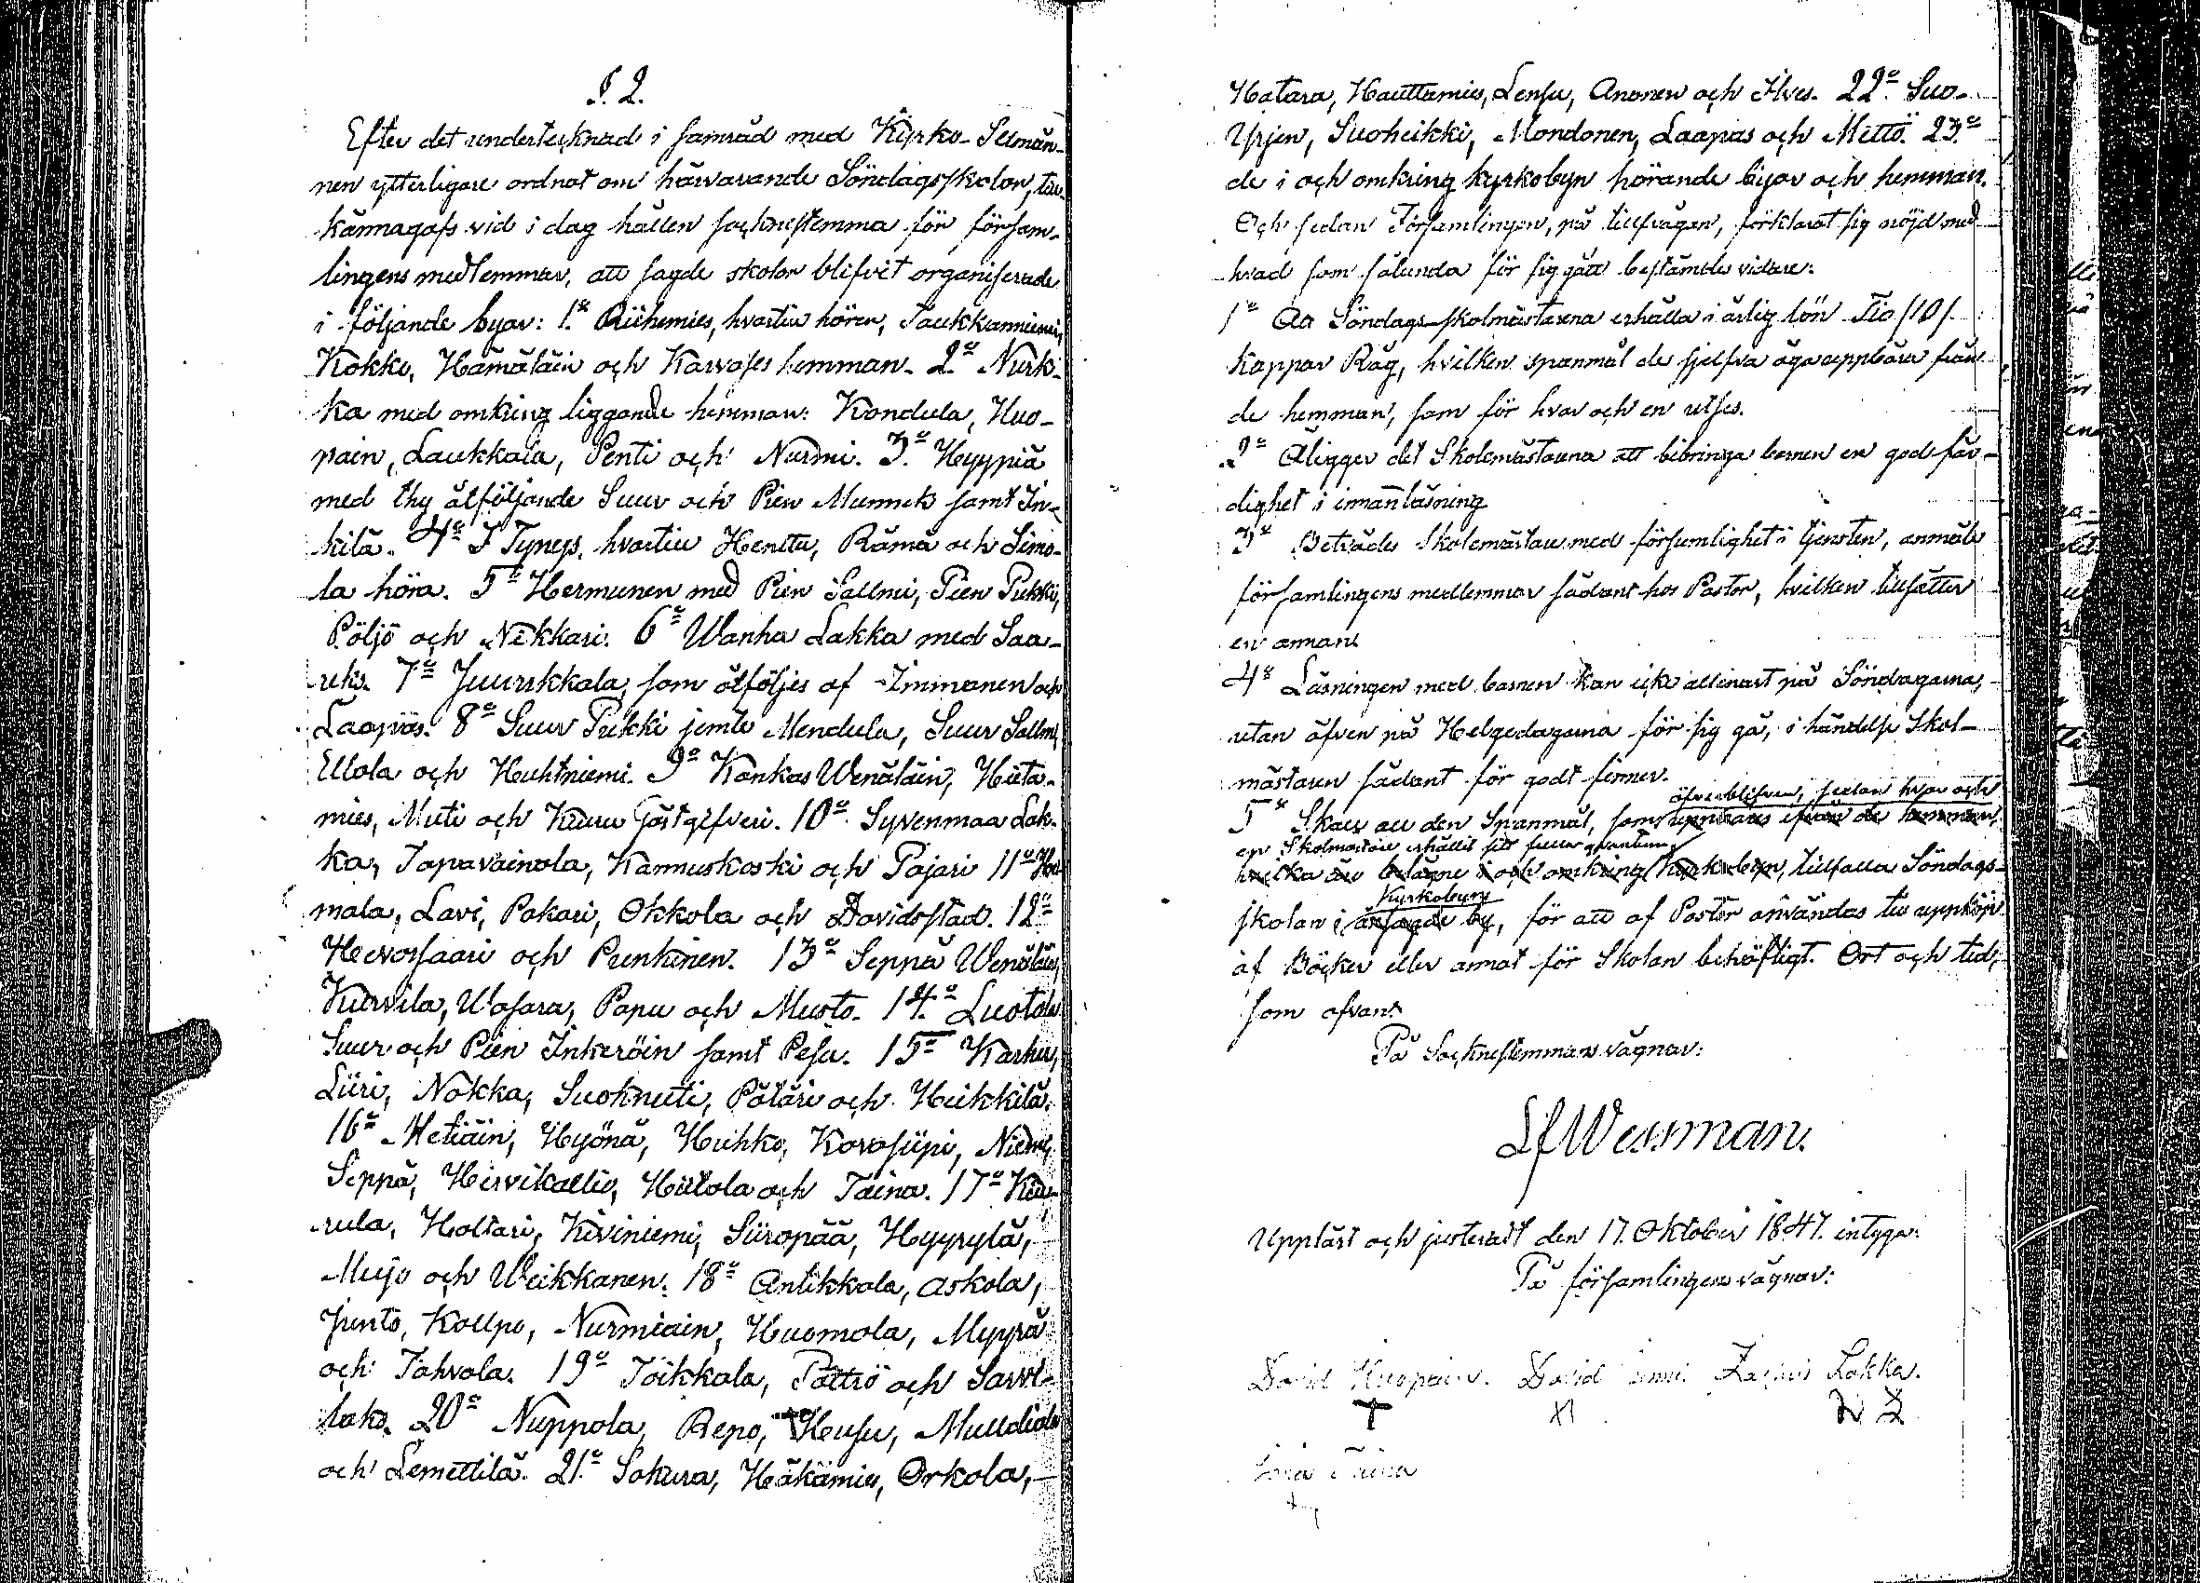 §. 2.
Efter det undertecknad i samråd med Kyrko-Sexmän-
nen ytterligare ordnat om härvarande Söndagsskolor, till-
kännagafs vid i dag hållen sockenstemma för försam-
lingens medlemmar, att sagde skolor blifvit organiserade
i följande byar: 1:o Riihemies, hvartill hörer, Taukkanniemi,
Kokko, Hämäläin och Karvases hemman. 2:o Nurk-
ka med omkring liggande hemman: Kondula, Huo-
pain, Laukkala, Penti och Nurmi. 3:o Hyypiä
med thy åtföljande Suur och Pien Munnek samt In-
kilä. 4:o I Tyneys, hvartill Henttu, Rämä och Simo-
la höra. 5:o Hermunen med Pien Sallmi, Pien Pukki,
Pöljö och Nikkari. 6:o Wanha Lakka med Saa-
reks. 7:o Juurikkala, som åtföljes af Immonen och
Laapas. 8:o Suur Pukki jemte Mendula, Suur Sallmi,
Ellola och Huhtniemi. 9:o Kankas Wenäläin, Hiita-
mies, Muti och Kiuru Gästgifveri. 10:o Syvenmaa Lak-
ka, Tapavainola, Kannuskoski och Pajari 11:o Ha-
mala, Lavi, Pakari, Okkola och Davidsstad. 12:o
Hevossaari och Punkinen. 13:o Seppä Wenäläin,
Kurvila, Wasara, Papu och Musto. 14:o Luotola
Suur och Pien Inkeröin samt Pesu. 15:o Karhu,
Liiri, Nokka, Suoknuti, Pätäri och Heikkilä.
16:o Metiäin, Hyönä, Huhko, Korasiipi, Niemi,
Seppä, Hirvikallio, Hiitola och Taina. 17:o Kiu-
rula, Holtari, Kiviniemi, Siiropää, Hyyrylä,
Mujo och Weikkanen. 18:o Antikkala, Askola,
Junto, Kollpo, Nurmiain, Huomola, Myyrä
och Tahvola. 19:o Töikkala, Pättiö och Sarvi-
laks. 20:o Nuppola, Repo, Husu, Mulldiala
och Lemettilä. 21:o Sokura, Häkämies, Orkola,
Hatara, Hauttamies, Lensu, Anonen och Ilves. 22:o Suo-
Yrjen, Suoheikki, Mondonen, Laapas och Mettö. 23:o
de i och omkring kyrkobyn hörande byar och hemman.
Och sedan Församlingen, på tillfrågan, förklarat sig nöjd med
hvad som sålunda för sig gått bestämdes vidare:
1:o Att Söndags-skolmästarena erhålla i årlig lön Tio /10/
kappar Råg, hvilken spanmål de sjelfva äga uppbära från
de hemman, som för hvar och en utses.
2:o Åligger det Skolemästarena att bibringa barnen en god fär-
dighet i innanläsning
3:o Beträdes Skolemästare med försumlighet i tjensten, anmäle
församlingens medlemmar sådant hos Pastor, hvilken tillsätter
en annan.
4:o Läsningen med barnen kan icke allenast på Söndagarna,
utan äfven på Helgedagarna för sig gå, i händelse Skol-
mästaren sådant för godt finner.
öfverblifver, sedan hvar och
5:o Skall all den Spanmål, som uppbäres ifrån de hemman,
en Skolmästare erhållit sitt fulla quantum
hvilka äro belägne i och omkring kyrkobyn, tillfalla Söndags-
Kyrkobyn
skolan i ansagde by, för att af Pastor användas till uppköp
af Böcker eller annat för Skolan behöfligt. Ort och tid,
som ofvan.
På Sockenstemmans vägnar:
Lf Wessman.
Uppläst och justeradt den 17. Oktober 1847. intyga:
På församlingens vägnar:
David Huopain. David Zachris Lakka.
Taina